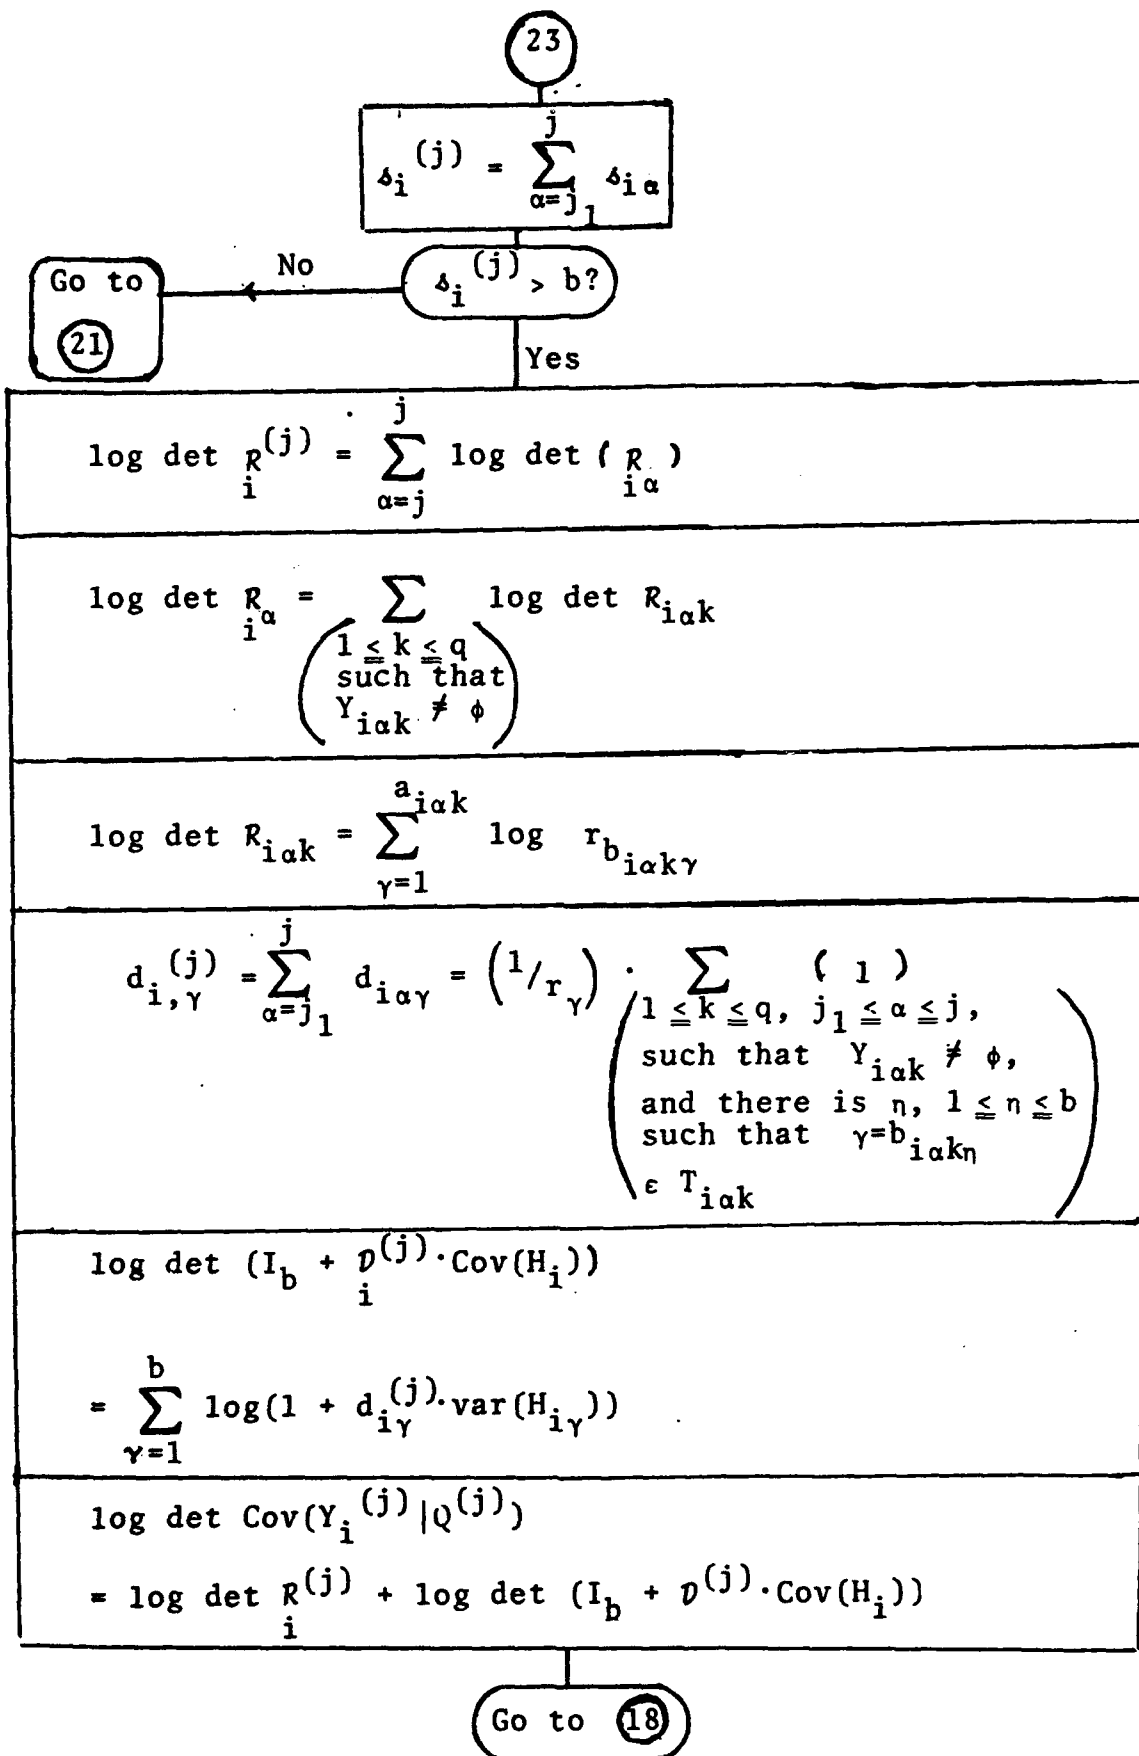 23
s_i^(j) = ∑_{α=j_1}^{j} s_{iα}
s_i^(j) > b?
No
Go to
21
Yes
log det R_i^(j) = ∑_{α=j}^{j} log det ( R_{iα} )
log det R_{iα} = ∑ log det R_{iαk}
1 ≦ k ≦ q
such that
Y_{iαk} ≠ ϕ
log det R_{iαk} = ∑_{γ=1}^{a_{iαk}} log r_{b_{iαkγ}}
d_{i,γ}^(j) = ∑_{α=j_1}^{j} d_{iαγ} = (1/r_γ) · ∑ ( 1 )
1 ≦ k ≦ q, j_1 ≦ α ≦ j,
such that Y_{iαk} ≠ ϕ,
and there is η, 1 ≦ η ≦ b
such that γ=b_{iαkη}
ε T_{iαk}
log det (I_b + D_i^(j)·Cov(H_i))
= ∑_{γ=1}^{b} log(1 + d_{iγ}^(j)·var(H_{iγ}))
log det Cov(Y_i^(j)|Q^(j))
= log det R_i^(j) + log det (I_b + D^(j)·Cov(H_i))
Go to 18